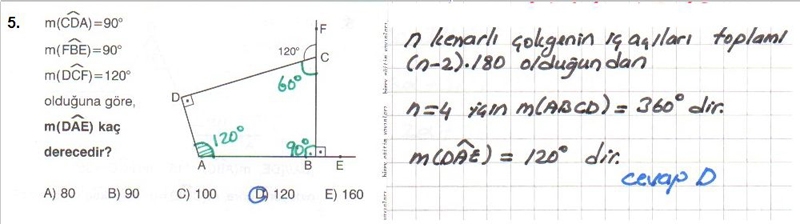 5.
m(CDA)=90°
m(FBE)=90°
m(DCF)=120°
olduğuna göre,
m(DAE) kaç
derecedir?
F
120°
C
60°
D
120°
90°
A
B
E
A) 80 B) 90 C) 100 D) 120 E) 160
n kenarlı çokgenin iç açıları toplamı
(n-2).180 olduğundan
n=4 için m(ABCD) = 360° dir.
m(DAE) = 120° dir.
cevap D